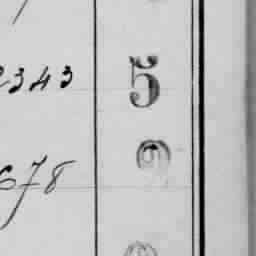 2343 5
9
678